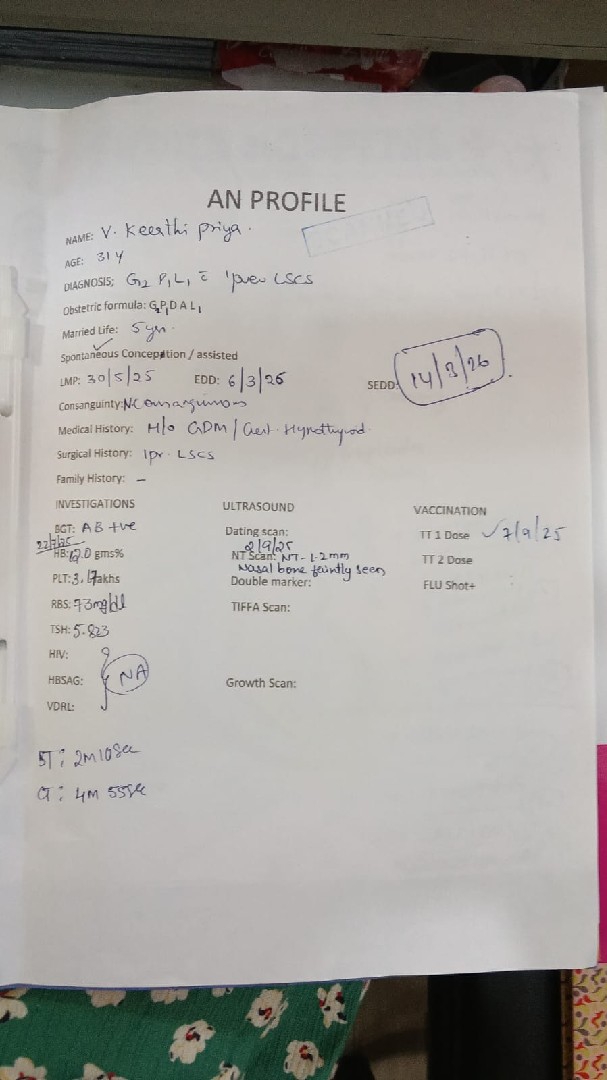 AN PROFILE
NAME: V. Keerthi priya.
AGE: 31 Y
DIAGNOSIS: G2 P1 L1 c̄ 1 prev LSCS
Obstetric formula: G2P1D A L1
Married Life: 5 yrs.
Spontaneous Conception / assisted
LMP: 30/5/25 EDD: 6/3/26 SEDD: 14/3/26
Consanguinty: N Consanguinous
Medical History: H/o GDM / Gest. Hypothyroid
Surgical History: 1 pr. LSCS
Family History: –
INVESTIGATIONS ULTRASOUND VACCINATION
BGT: AB +ve Dating scan: TT 1 Dose ✓ 7/9/25
22/7/25
HB: 12.0 gms% 2/9/25 NT Scan: NT - 1.2 mm TT 2 Dose
Nasal bone faintly seen
PLT: 3.17 lakhs Double marker: FLU Shot+
RBS: 73 mg/dl TIFFA Scan:
TSH: 5.823
HIV:
HBSAG: NA Growth Scan:
VDRL:
BT: 2M 10 Sec
CT: 4M 55 Sec